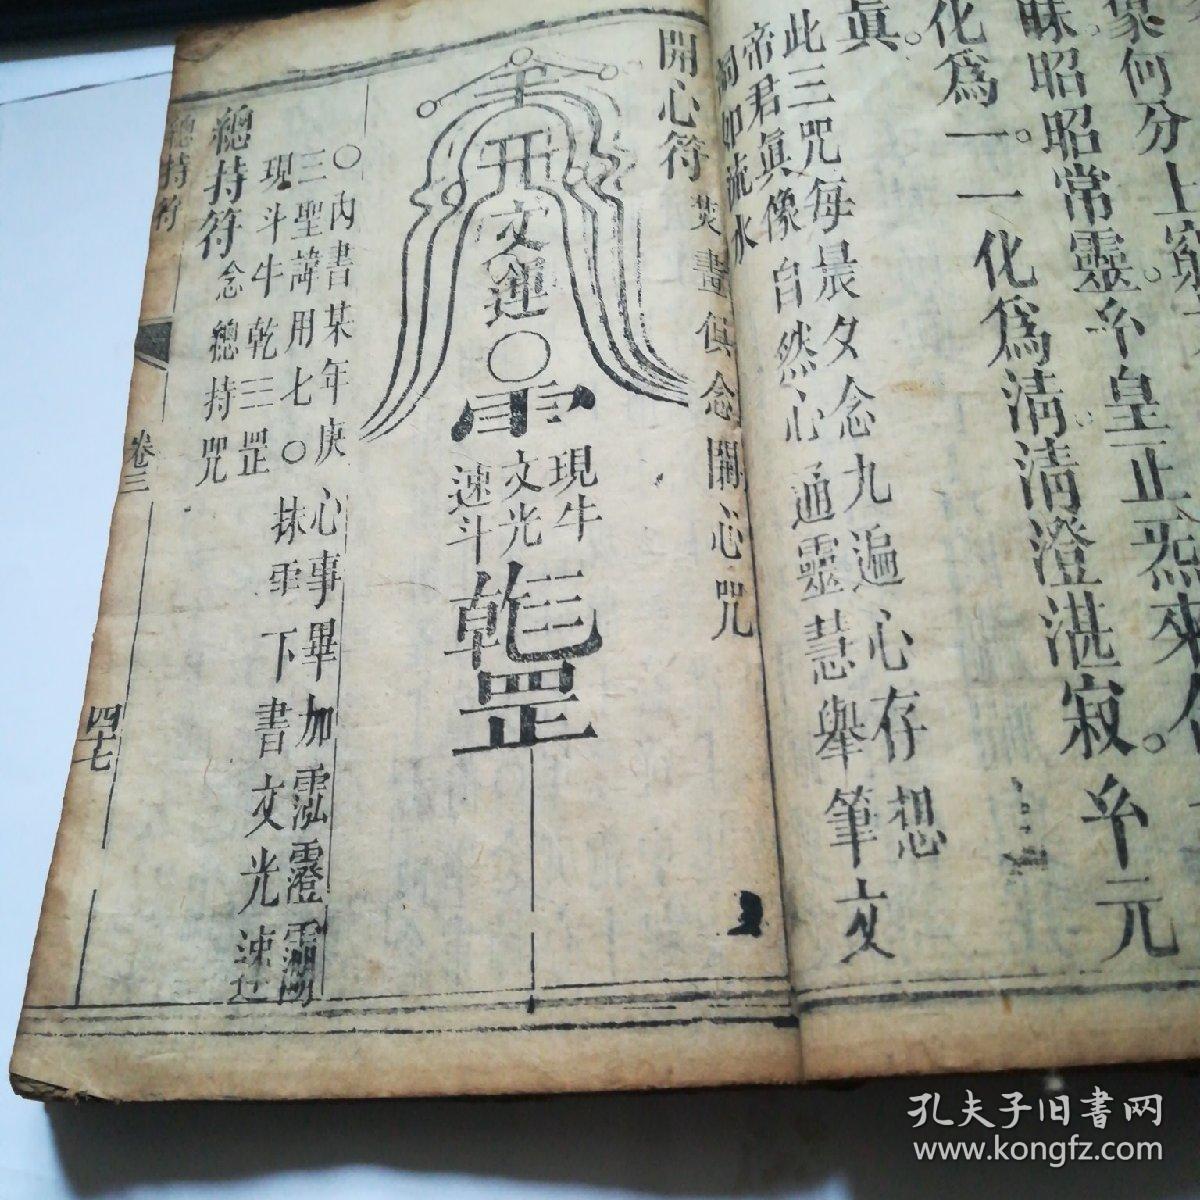 象何分上窮
昧昭昭常靈㐃皇止炁來
化爲一一化爲清清澄湛寂㐃元
眞
此三咒每晨夕念九遍心存想
帝君眞像自然心通靈慧舉筆文
詞如流水
開心符 焚畫俱念開心咒
開
文運
〇
現牛
文光
速斗
罡
〇內書某年庚心事畢加
三聖諱用七〇抹 下書文光速
現斗牛乾三罡
總持符 念總持咒
總持符
卷三
四七
孔夫子旧書网
www.kongfz.com